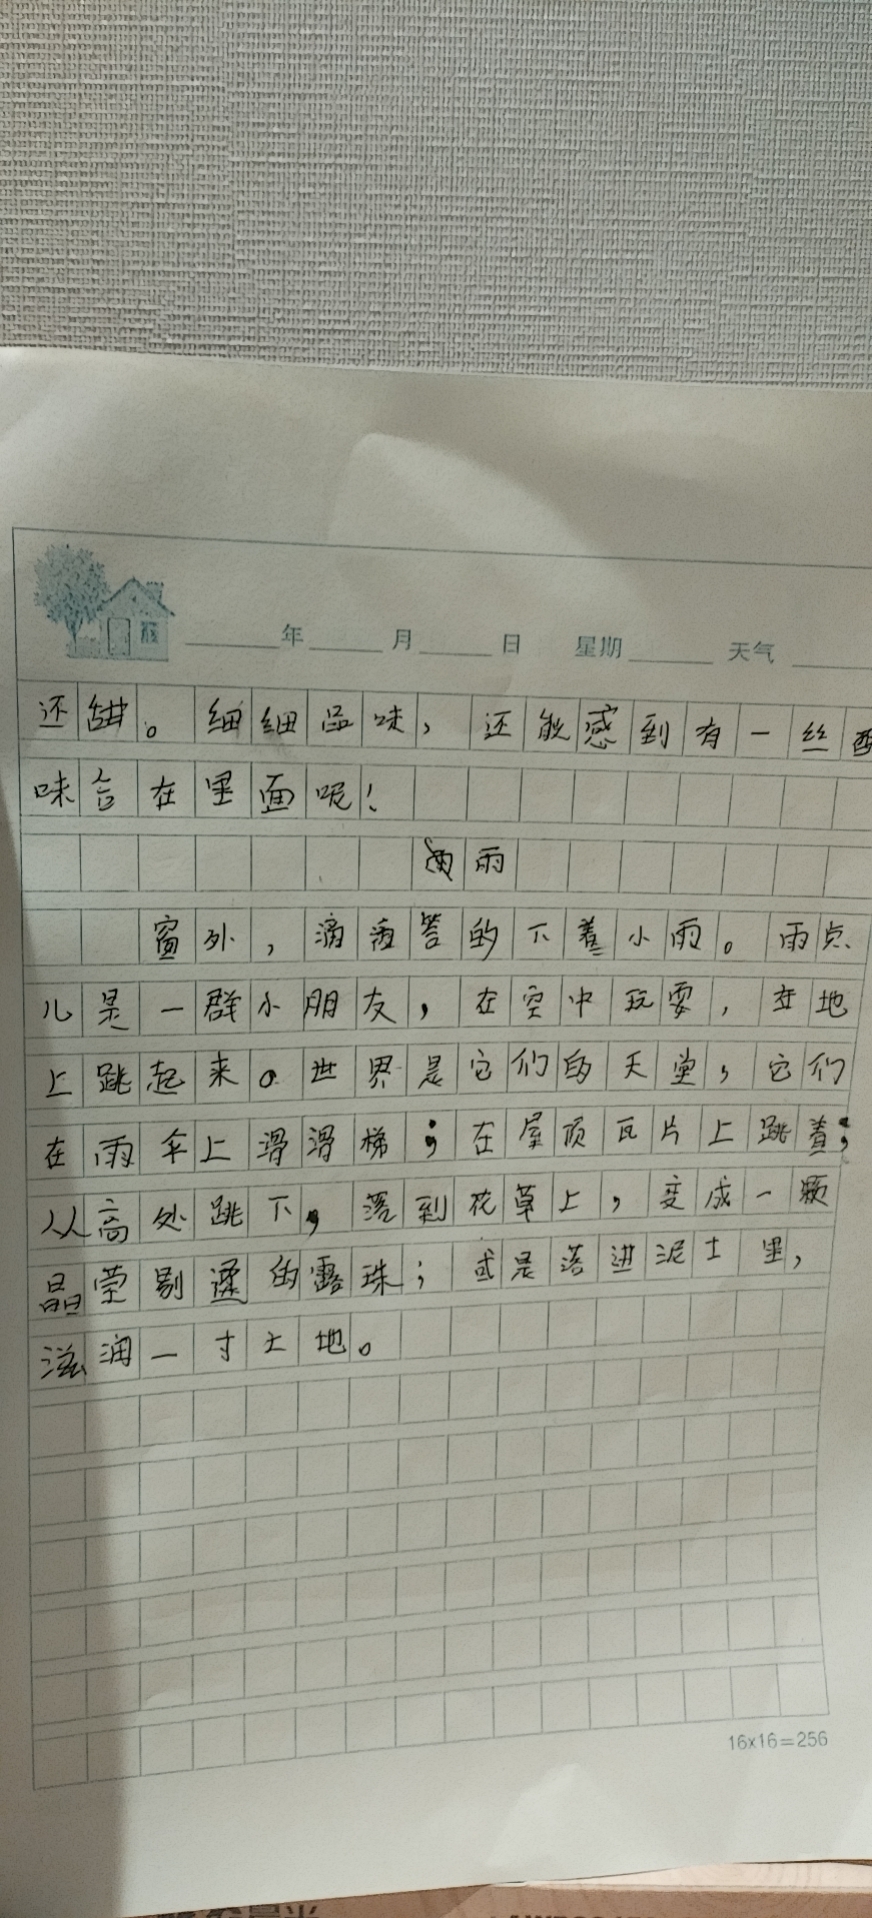 年 月 日 星期 天气
还甜。细细品味，还能感到有一丝酸
味含在里面呢！
雨
窗外，滴滴答的下着小雨。雨点
儿是一群小朋友，在空中玩耍，在地
上跳起来。世界是它们的天堂，它们
在雨伞上滑滑梯；在屋顶瓦片上跳着；
从高处跳下，落到花草上，变成一颗
晶莹剔透的露珠；或是落进泥土里，
滋润一寸土地。
16x16=256